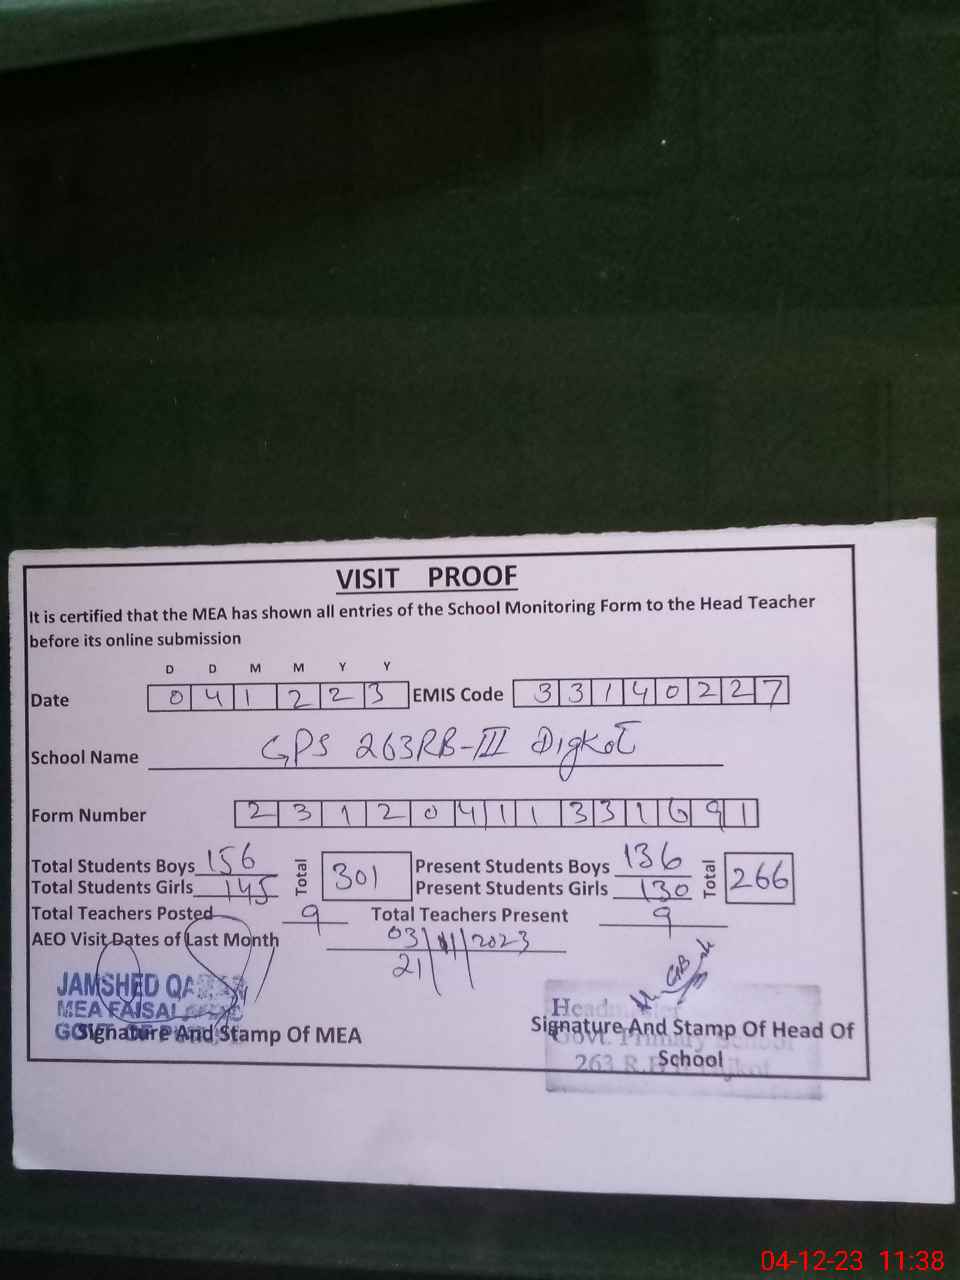 VISIT PROOF
It is certified that the MEA has shown all entries of the School Monitoring Form to the Head Teacher
before its online submission
D D M M Y Y
Date 0 4 1 2 2 3 EMIS Code 3 3 1 4 0 2 2 7
School Name GPS 263RB-III Digkot
Form Number 2 3 1 2 0 4 1 1 3 3 1 6 9 1
Total Students Boys 156 Total 301 Present Students Boys 136 Total 266
Total Students Girls 145 Present Students Girls 130
Total Teachers Posted 9 Total Teachers Present 9
AEO Visit Dates of Last Month 03/11/2023
21
JAMSHED
MEA FAISAL
Signature And Stamp Of MEA
Headmaster
Signature And Stamp Of Head Of
School
Govt. Primary School
263 R.B
04-12-23 11:38